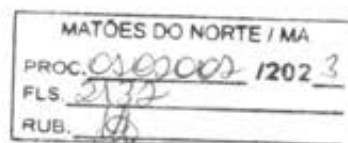 MATÕES DO NORTE / MA
PROC. 0502002 /2023
FLS. 2137
RUB.